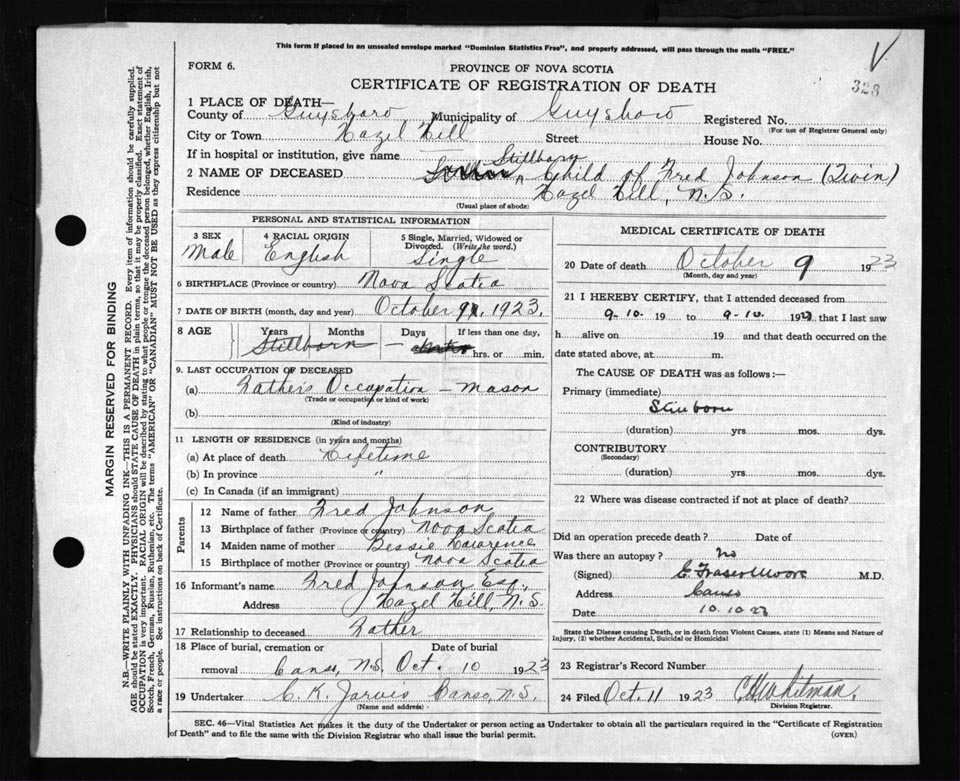 This form if placed in an unsealed envelope marked "Dominion Statistics Free", and properly addressed, will pass through the mails "FREE."
FORM 6.
PROVINCE OF NOVA SCOTIA
328
CERTIFICATE OF REGISTRATION OF DEATH
1 PLACE OF DEATH—
County of Guysboro Municipality of Guysboro Registered No.
(For use of Registrar General only)
City or Town Hazel Hill Street House No.
If in hospital or institution, give name
2 NAME OF DECEASED Stillborn Child of Fred Johnson (Twin)
Residence Hazel Hill, N.S.
(Usual place of abode)
PERSONAL AND STATISTICAL INFORMATION
3 SEX Male
4 RACIAL ORIGIN English
5 Single, Married, Widowed or Divorced. (Write the word.) Single
6 BIRTHPLACE (Province or country) Nova Scotia
7 DATE OF BIRTH (month, day and year) October 9, 1923.
8 AGE Years Months Days If less than one day,
Stillborn — hrs. or min.
9. LAST OCCUPATION OF DECEASED
(a) Father's Occupation — Mason
(Trade or occupation or kind of work)
(b)
(Kind of industry)
11 LENGTH OF RESIDENCE (in years and months)
(a) At place of death Lifetime
(b) In province "
(c) In Canada (if an immigrant)
Parents
12 Name of father Fred Johnson
13 Birthplace of father (Province or country) Nova Scotia
14 Maiden name of mother Bessie Lawrence
15 Birthplace of mother (Province or country) Nova Scotia
16 Informant's name Fred Johnson Esq.,
Address Hazel Hill, N.S.
17 Relationship to deceased Father
18 Place of burial, cremation or Date of burial
removal Canso, N.S. Oct. 10 1923
19 Undertaker C. K. Jarvis Canso, N.S.
(Name and address)
MEDICAL CERTIFICATE OF DEATH
20 Date of death October 9 1923
(Month, day and year)
21 I HEREBY CERTIFY, that I attended deceased from
9-10. 19 to 9-10. 1923 that I last saw
h alive on 19 and that death occurred on the
date stated above, at m.
The CAUSE OF DEATH was as follows:—
Primary (immediate)
Stillborn
(duration) yrs. mos. dys.
CONTRIBUTORY
(Secondary)
(duration) yrs. mos. dys.
22 Where was disease contracted if not at place of death?
Did an operation precede death? Date of
Was there an autopsy? No
(Signed) C. Fraser Moore M.D.
Address Canso
Date 10.10.23
State the Disease causing Death, or in death from Violent Causes, state (1) Means and Nature of
Injury, (2) whether Accidental, Suicidal or Homicidal
23 Registrar's Record Number
24 Filed Oct. 11 1923 C H Whitman,
Division Registrar.
SEC. 46—Vital Statistics Act makes it the duty of the Undertaker or person acting as Undertaker to obtain all the particulars required in the "Certificate of Registration
of Death" and to file the same with the Division Registrar who shall issue the burial permit.
(OVER)
MARGIN RESERVED FOR BINDING
N.B.—WRITE PLAINLY WITH UNFADING INK—THIS IS A PERMANENT RECORD. Every item of information should be carefully supplied.
AGE should be stated EXACTLY. PHYSICIANS should STATE CAUSE OF DEATH in plain terms, so that it may be properly classified. Exact statement of
OCCUPATION is very important. RACIAL ORIGIN will be described by stating to what people or tongue the deceased person belonged, whether English, Irish,
Scotch, French, German, Russian, Ruthenian, etc. The terms "AMERICAN" or "CANADIAN" MUST NOT BE USED as they express citizenship but not
a race or people. See instructions on back of Certificate.